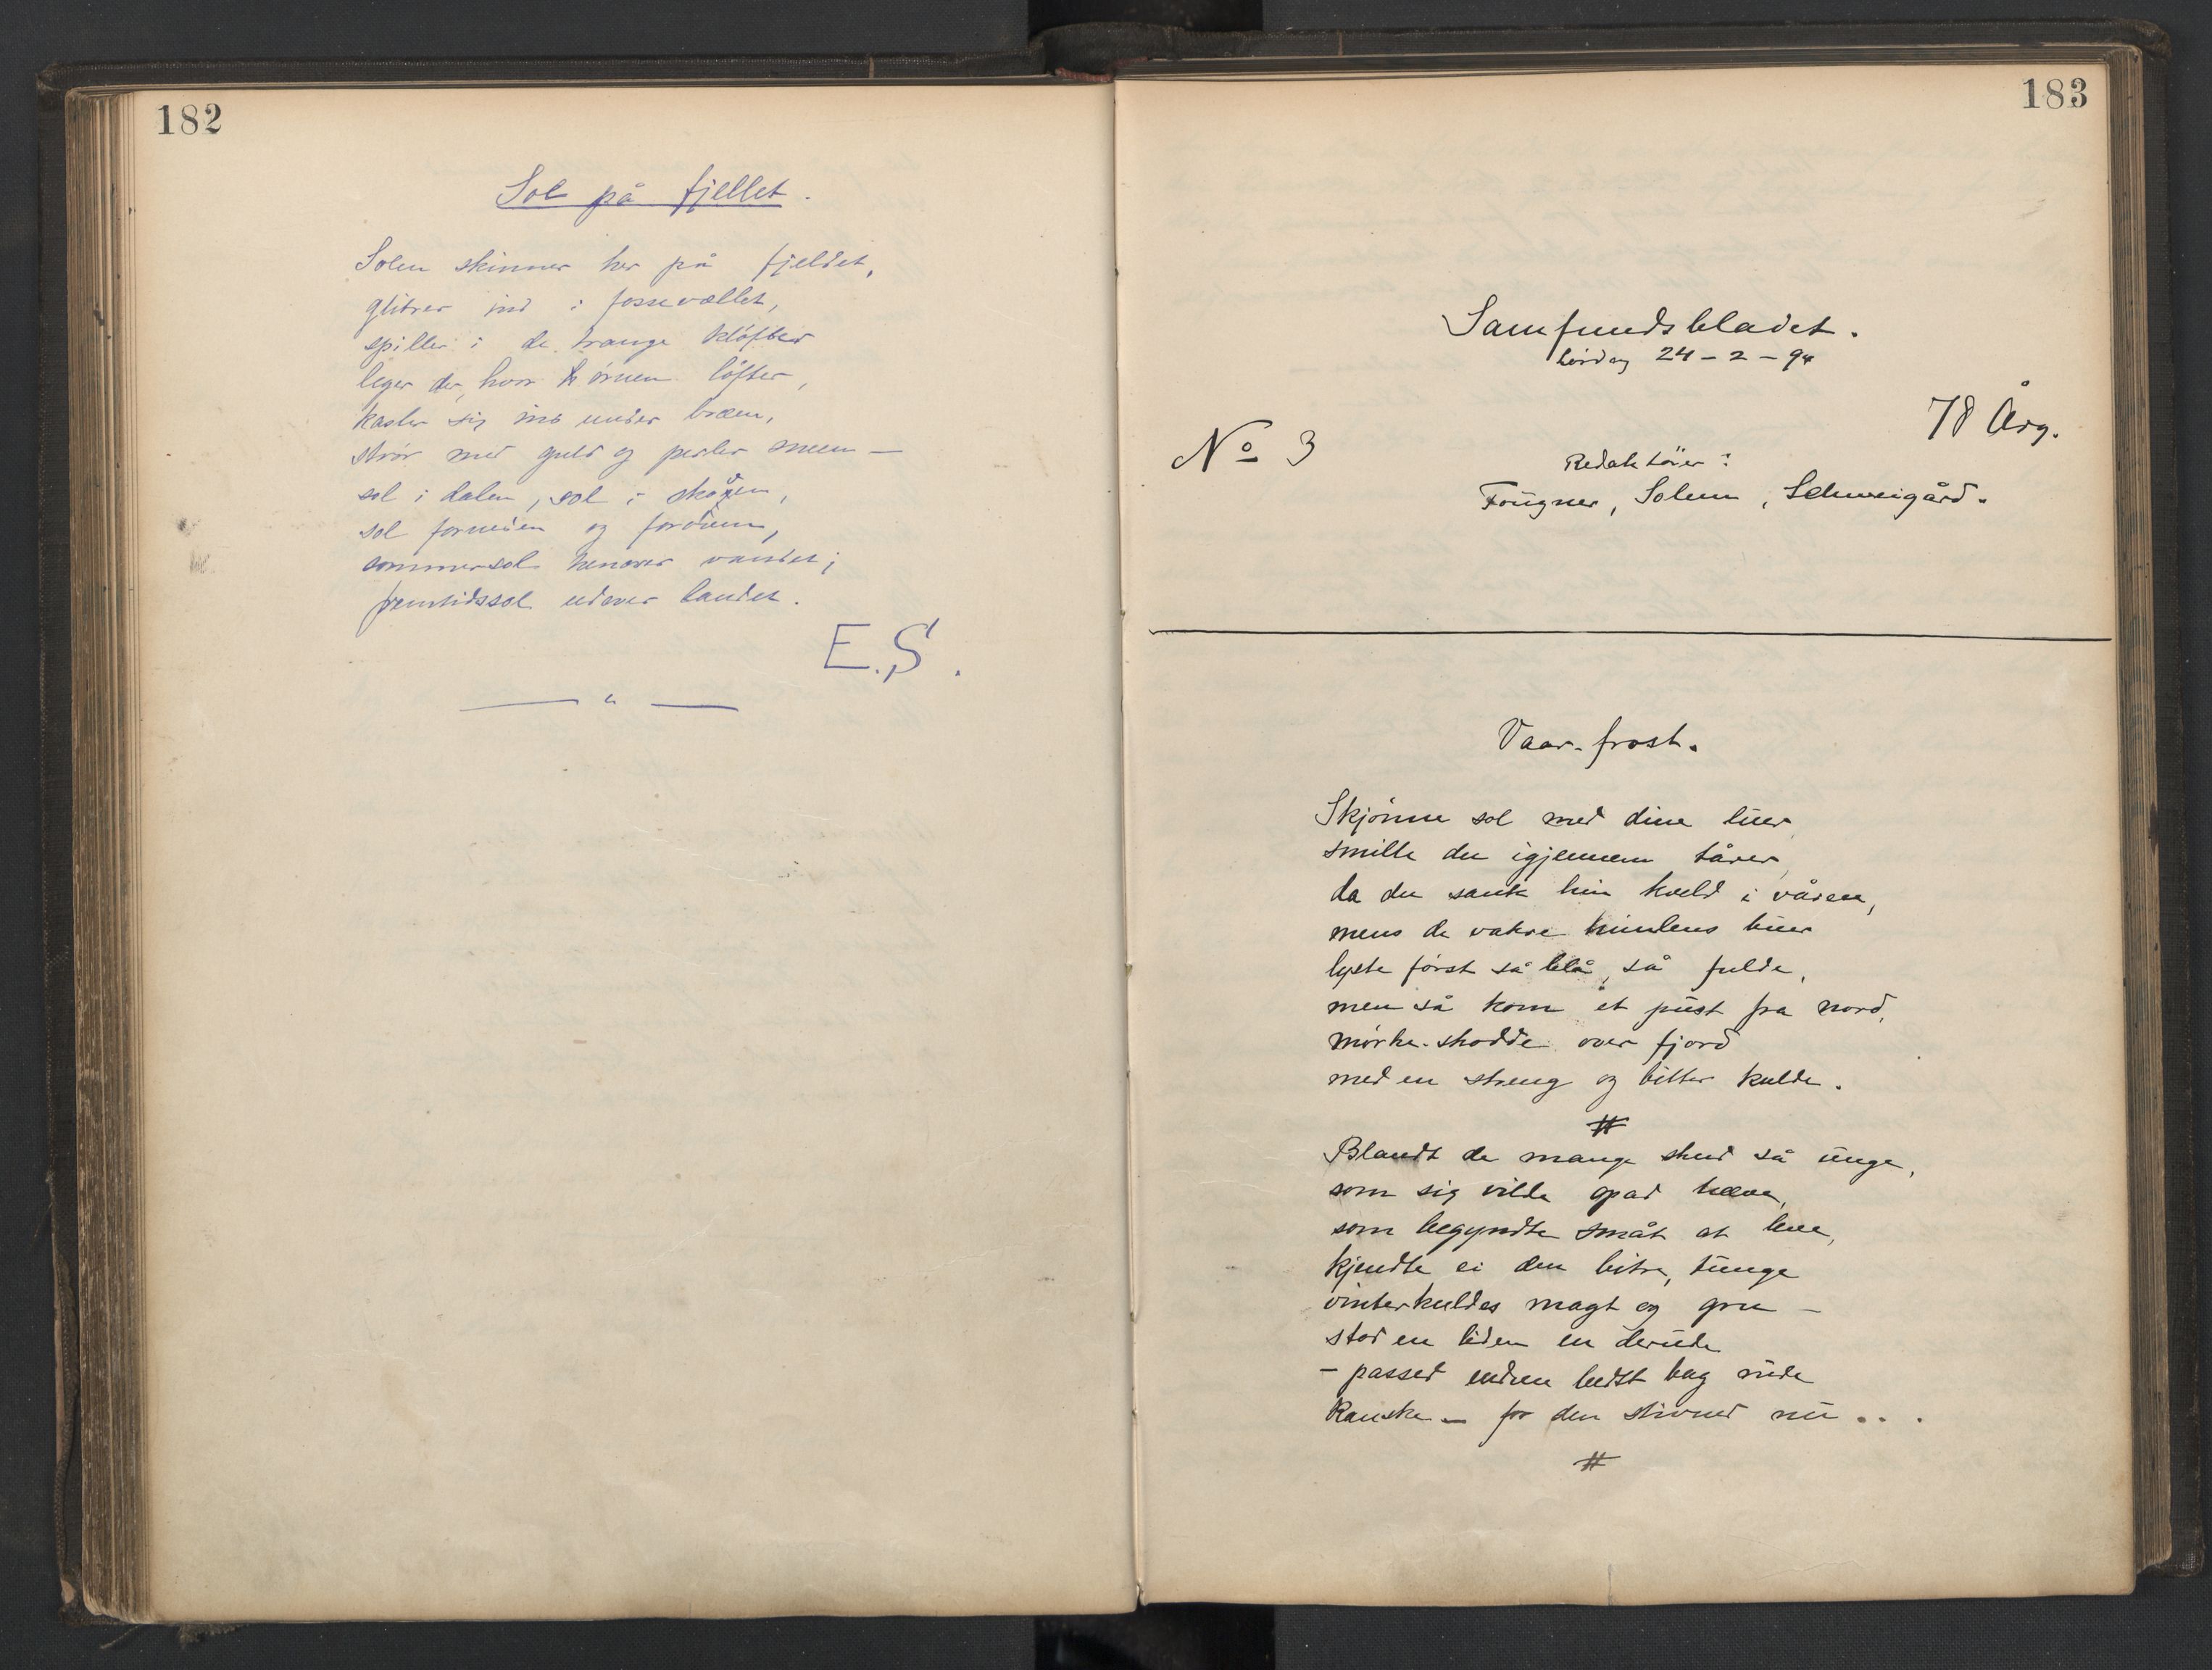 182
Sol på fjellet.
Solen skinner her på fjeldet,
glitrer ind i fossevællet,
spiller i de trange kløfter
leger der, hvor ørnen løfter,
kaster sig ind under bræen,
strør med guld og perler sneen —
sol i dalen, sol i skogen,
sol forneden og foroven,
sommersol henover vandet;
fremtidssol udover landet.
E.S.
183
Samfundsbladet.
Lørdag 24-2-94
78 Årg.
No 3
Redaktører:
Fougner, Solem, Schweigård.
Vaar-frost.
Skjønne sol med dine luer,
smilte du igjennem tårer,
da du sank hin kveld i våren,
mens de vakre himlens buer
lyste først så blå, så fulde,
men så kom et pust fra nord,
mørke-skodde over fjord
med en streng og bitter kulde.
#
Blandt de mange skud så unge,
som sig vilde opad hæve,
som begyndte småt at leve,
kjendte ei den bitre, tunge
vinterkuldes magt og gru —
stod en liden en derude
— passed endnu bedst bag rude
kanske — for den stivned nu . . .
#